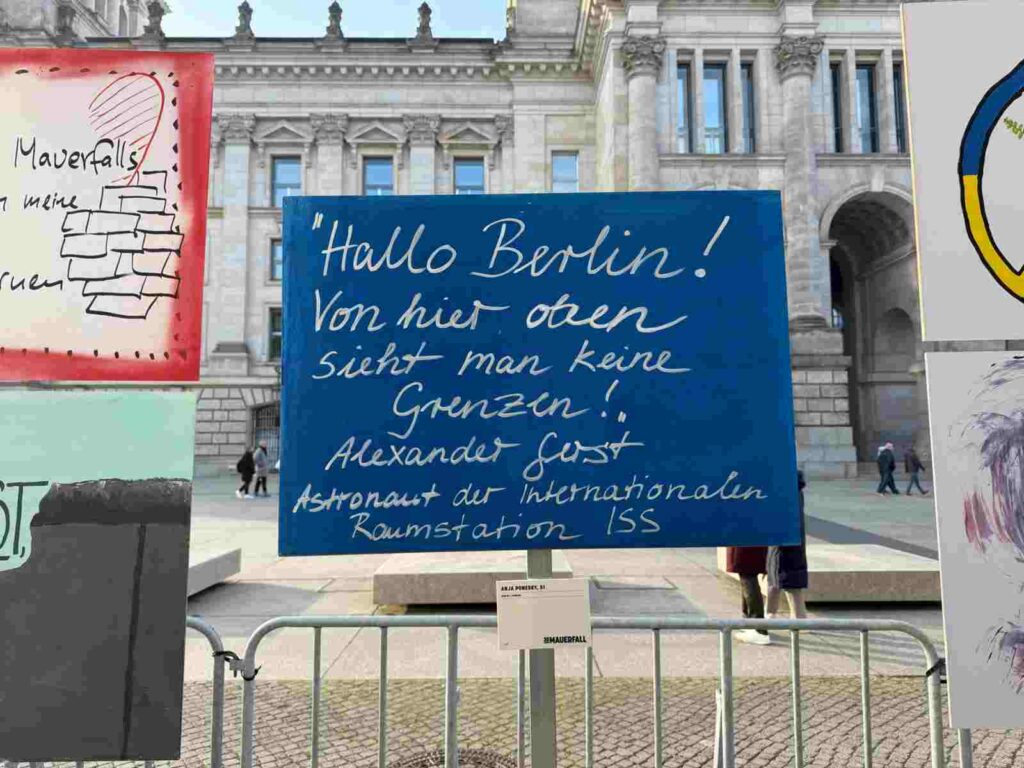 Mauerfalls
meine
"Hallo Berlin!
Von hier oben
sieht man keine
Grenzen!"
Alexander Gerst
Astronaut der Internationalen
Raumstation ISS
ANJA POMERRY, 51
MAUERFALL